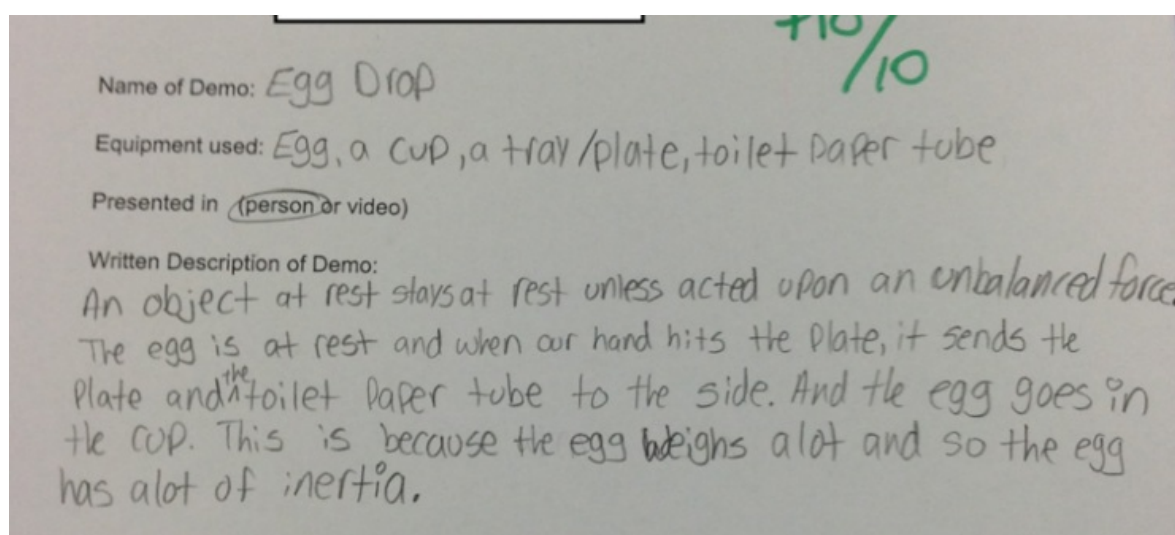 +10/10
Name of Demo: Egg Drop
Equipment used: Egg, a cup, a tray/plate, toilet paper tube
Presented in (person or video)
Written Description of Demo:
An object at rest stays at rest unless acted upon an unbalanced force.
The egg is at rest and when our hand hits the plate, it sends the
plate and the toilet paper tube to the side. And the egg goes in
the cup. This is because the egg weighs alot and so the egg
has alot of inertia.